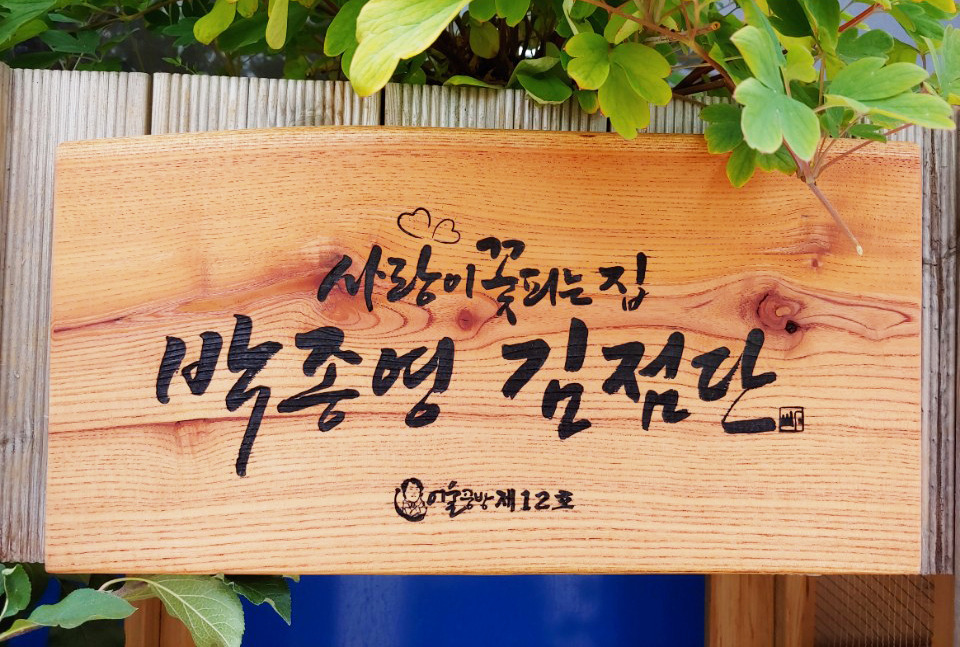 사랑이 꽃피는 집
박종영 김점단
어울공방 제12호